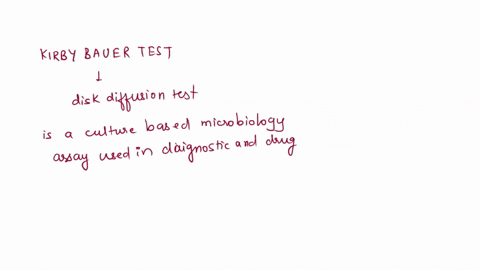 KIRBY BAUER TEST
↓
disk diffusion test
is a culture based microbiology
assay used in daignostic and drug